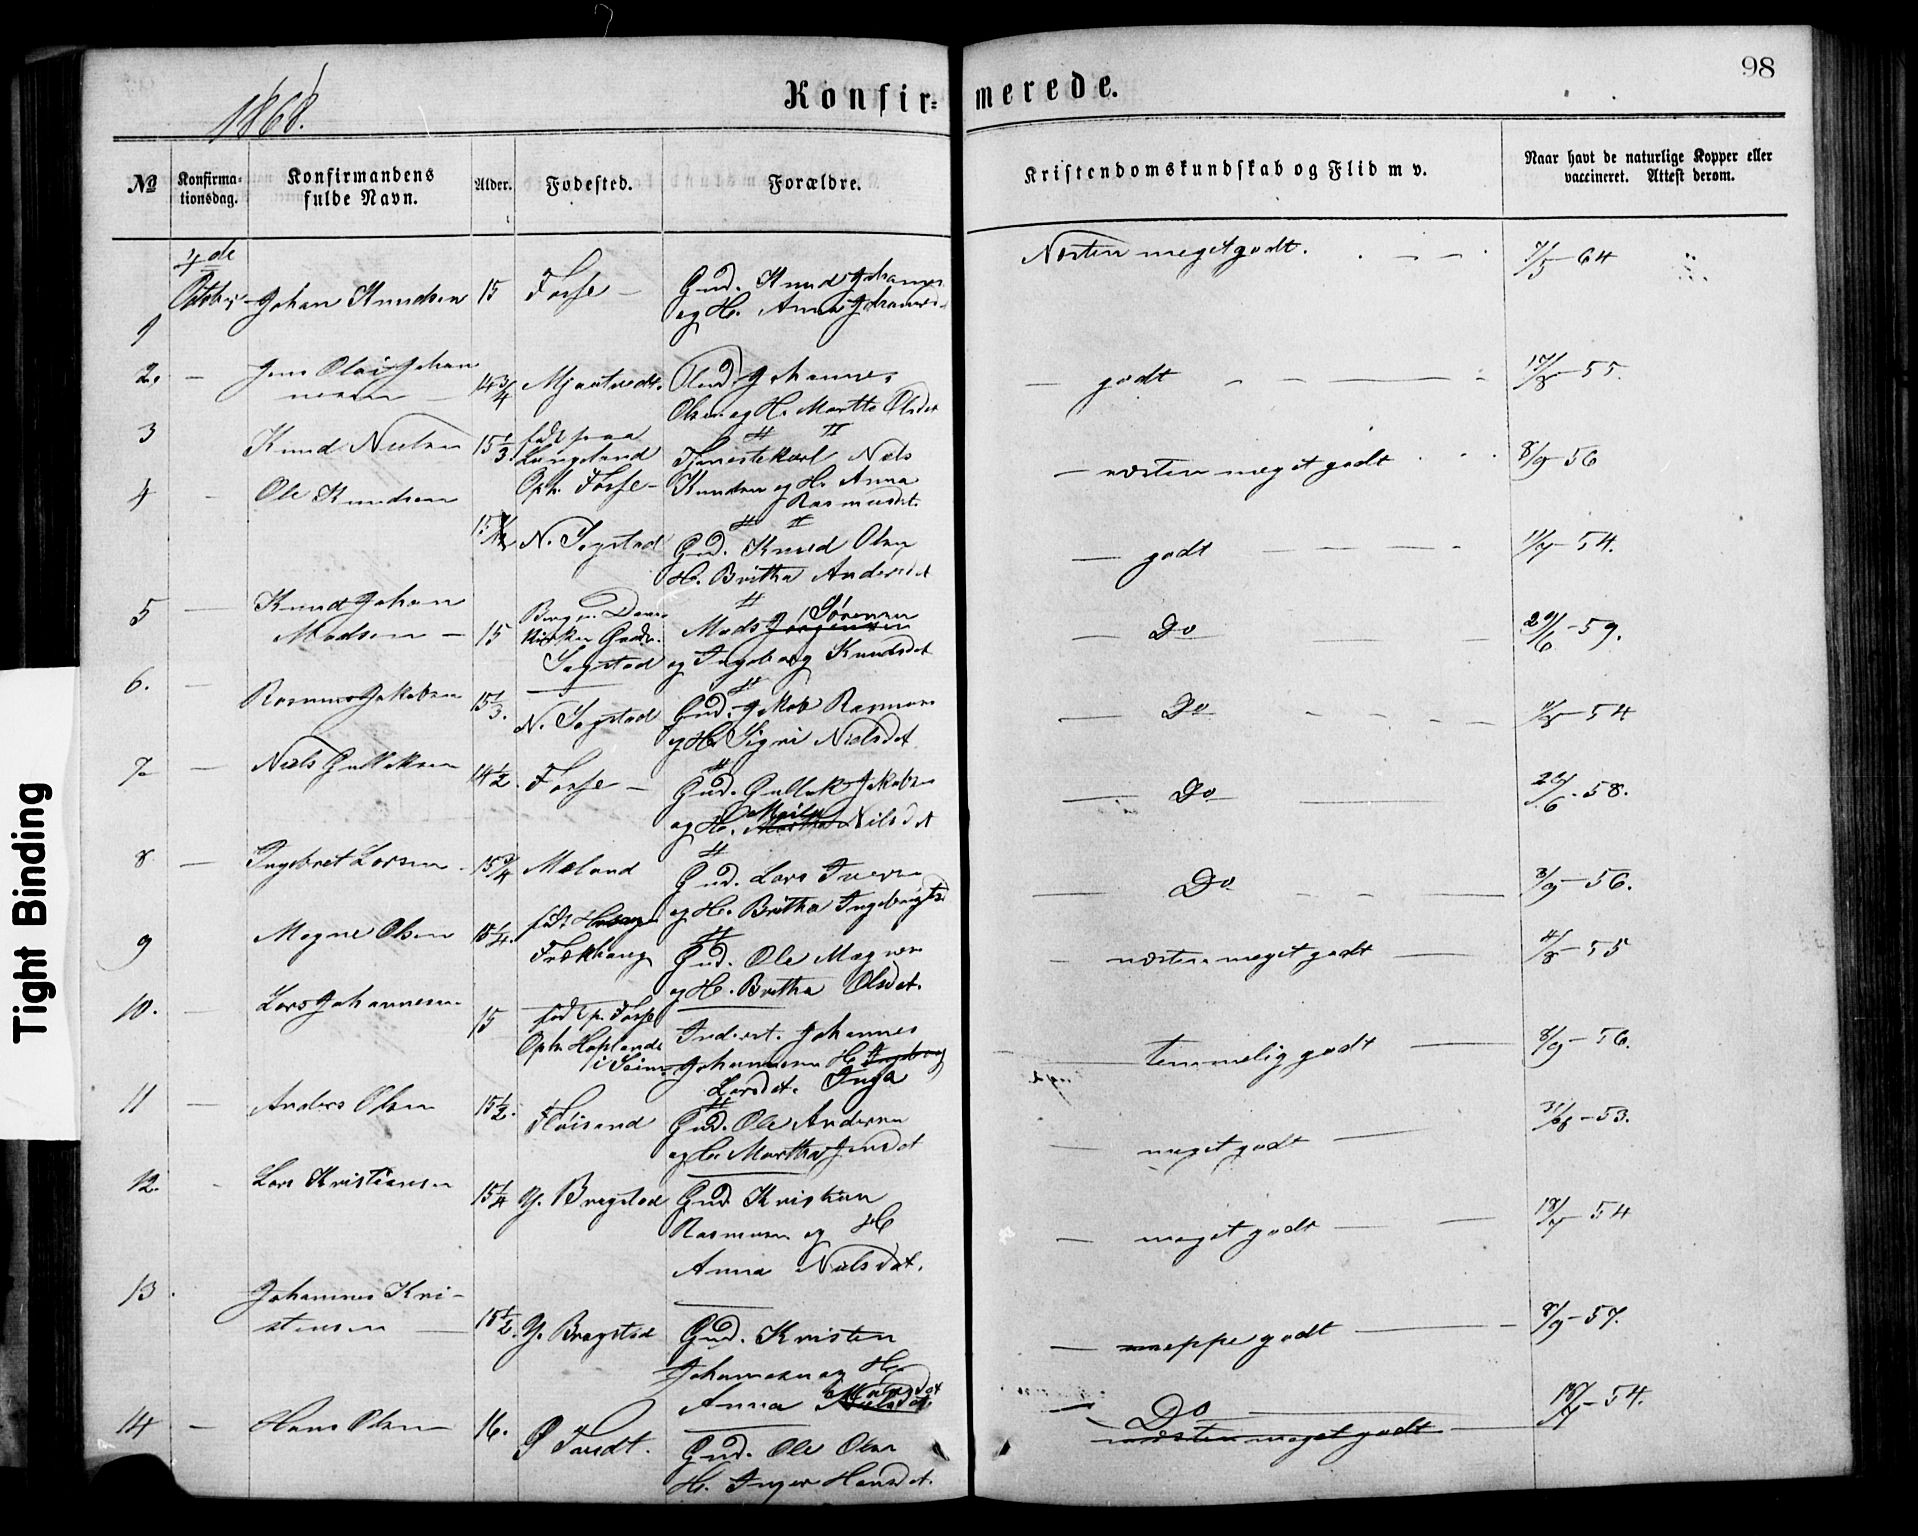 98
1868.
Konfir= merede.
№
Konfirma-
tionsdag.
Konfirmandens
fulde Navn.
Alder.
Fødested.
Forældre.
Kristendomskundskab og Flid m v.
Naar havt de naturlige Kopper eller
vaccineret. Attest derom.
4de
1 Johan Knudsen 15 Fosse - Gmd. Knud Johannes
og H. Anna Johannes
Næsten meget godt. 7/5-64
2. - Jens Olai Johan
nesen - 14 3/4 Mjaatvedt. Gmd. Johannes
Olsen og H. Marthe Olsdat
- godt 17/8-55.
3 Knud Nielsen 15 1/3 født paa
Langeland
Oph. Fosse - Tjenestekarl Niels
Knudsen og H. Anna
Rasmusdt.
- næsten meget godt 8/9-56
4 - Ole Knudsen N. Sagstad Gmd. Knud Olsen
H. Britha Andersdt
- godt 11/7-54.
5 - Knud Johan
Madsen - 15 Bergen Dom-
kirken
Sagstad Mads Jørgensen Sørensen
og Ingeborg Knudsdat
- Do - 29/6-59.
6. - Rasmus Jakobsen 15 1/3. N. Sagstad Gmd. Jakob Rasmus
og H. Signi Nielsdat
- Do - 54
7 - Niels Gulleksen 14 1/2. Fosse - Gmd. Gullik Jakobsen
og H. Martha Nilsdt
- Do - 26/6-58.
8 - Ingebret Larsen 15 3/4 Mæland Gmd. Lars Iversen
og H. Britha Ingebrigts
- Do - 8/9-56.
9 Magne Olsen 15 1/4. født
Frækhaug Gmd. Ole Magnesen
og H. Britha Olsdat.
- næsten meget godt - 4/8-55
10. - Lars Johannesen 15 født p. Fosse
Oph. Hopland
i Seim Inderst. Johannes
Johannesen H. Ingeborg
Larsdt. Inga
- temmelig godt - 8/9-56.
11 - Anders Olsen 15 1/2. Fløisand Gmd. Ole Andersen
og H. Martha Jensdt
- meget godt - 53.
12. - Lars Kristiansen 15 1/4 Y. Bragstad Gmd Kristian
Rasmusen og H
Anna Nielsdat.
- meget godt - 18/7-54
13. Johannes Kri-
stensen - 15 1/2. Y. Bragstad Gmd. Kristen
Johannesen og H.
Anna Nilsdat
- neppe godt - 8/9-57.
14 - Hans Olsen 16. Ø Tvedt. Gmd. Ole Olsen
H. Inger Hansdt.
Do
næsten meget godt 18/7-54.
Tight Binding